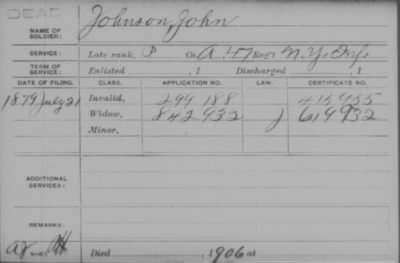 DEAD
NAME OF SOLDIER: Johnson, John
SERVICE: Late rank, P Co. A. 47 Reg't N.Y. Inf.
TERM OF SERVICE: Enlisted , 1 Discharged , 1
DATE OF FILING. CLASS. APPLICATION NO. LAW. CERTIFICATE NO.
1879 July 21 Invalid, 299 188 415955
Widow, 842 932 J 619932
Minor,
ADDITIONAL SERVICES:
REMARKS:
Died , 1906 at